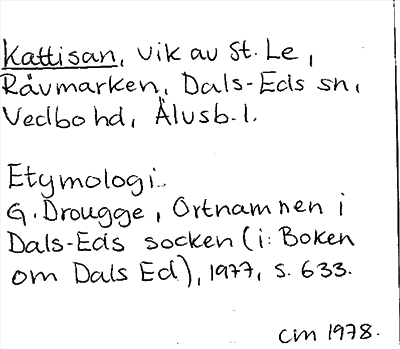 Kattisan, vik av St. Le,
Råvmarken, Dals-Eds sn,
Vedbo hd, Älvsb. l.
Etymologi.
G. Drougge, Ortnamnen i
Dals-Eds socken (i: Boken
om Dals Ed), 1977, s. 633.
cm 1978.